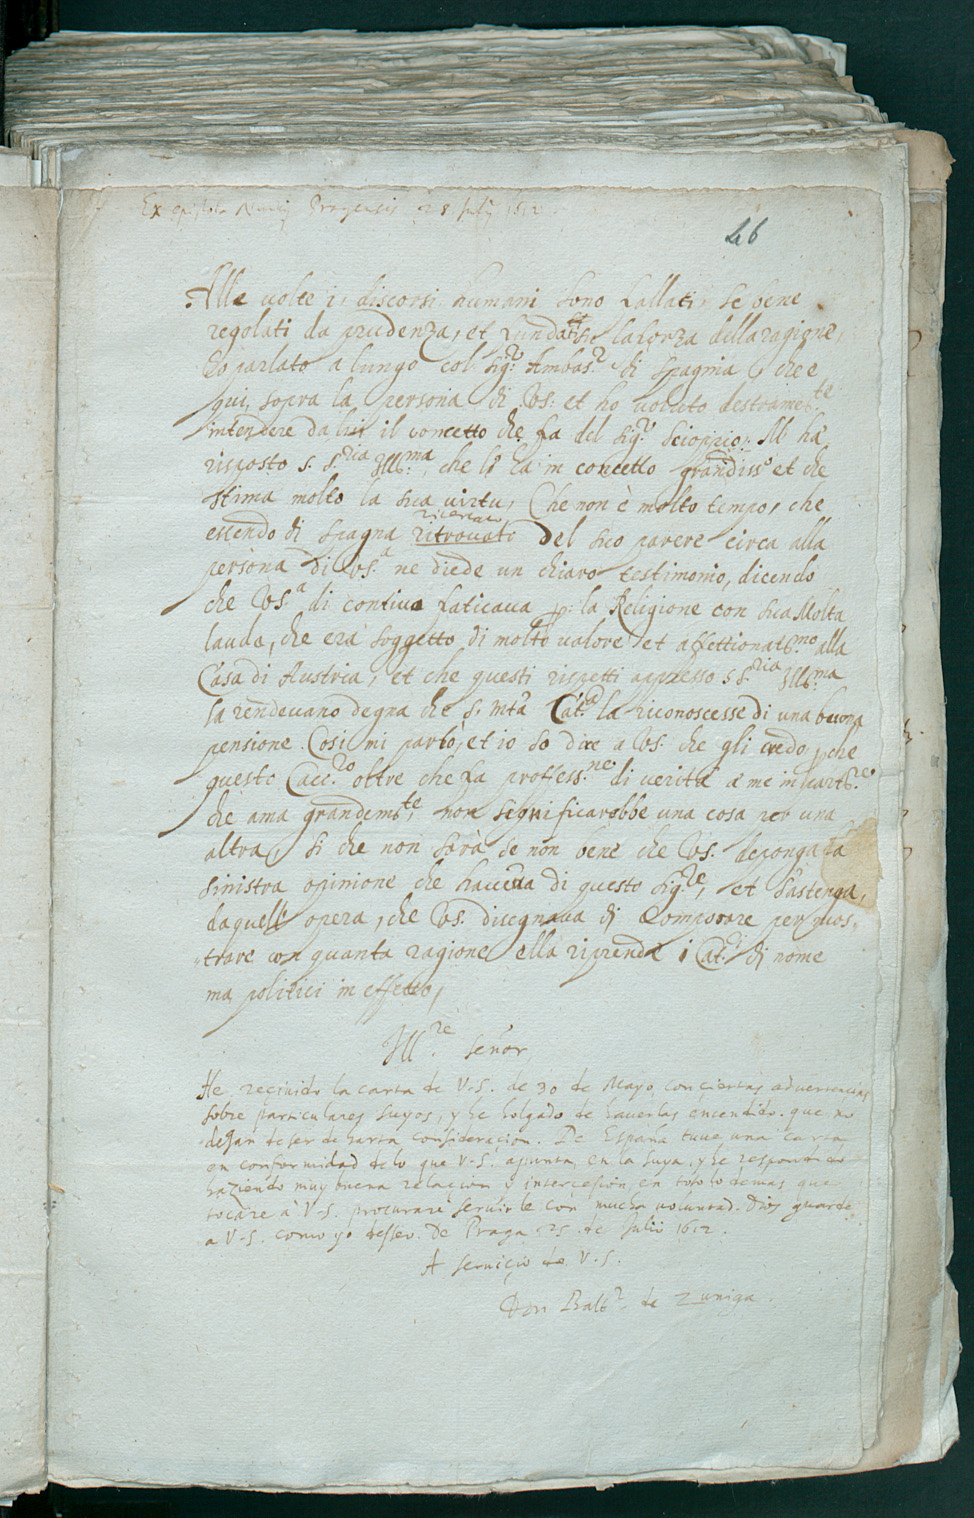 Ex epistola Nuncij Pragensis 28 Julij 1612.
46
Alle volte i discorsi humani sono fallati, se bene
regolati da prudenza, et fundati su la forza della ragione,
Ho parlato a lungo col Sig.re Ambas.re di Spagna, che e
qui, sopra la persona di VS. et ho voluto destramen.te
intendere da lui il concetto che fa del Sig.re Scioppio: M' ha
risposto S. S.ria Ill.ma, che l' ha in concetto grandiss.o et che
stima molto la sua virtu, Che non è molto tempo, che
ricercato
essendo di Spagna ritrovato del suo parere circa alla
persona di VS.a ne diede un chiaro testimonio, dicendo
che VS.a di continuo faticava p. la Religione con sua Molta
laude, che era soggetto di molto valore et affettionatis.mo alla
Casa di Austria, et che questi rispetti appresso S S.ria Ill.ma
la rendevano degna che S. Mtà Cat.ca la riconoscesse di una buona
pensione. Cosi mi parlò, et io so dire a VS. che gli credo, p che
questo Cav.ro oltre che fa profess.ne di verità à me in part.re
che ama grandem.te, non significarebbe una cosa per una
altra, Si che non sarà se non bene che VS. deponga la
sinistra opinione che haveva di questo Sig.re, et s'astenga,
da quell' opera, che VS. disegnava di Comporre per mos-
-trare con quanta ragione ella riprende i Cat.ci di nome
ma politici in effetto,
Ill.re Señor
He reciuido la carta de V.S. de 30 de Mayo, con ciertas aduertencias
sobre particulares suyos, y he holgado de hauerlas entendido. que no
dexan de ser de harta consideracion. De España tuue una carta
en conformidad de lo que V.S. apunta, en la suya, y he respondido
haziendo muy buena relacion y intercesion, en todo lo demas que
tocare à V.S. procurare seruirle con mucha voluntad. Dios guarde
a V.S. como yo desseo. De Praga 25. de Julio 1612.
A seruicio de V.S.
Don Balt.r de Zuniga.